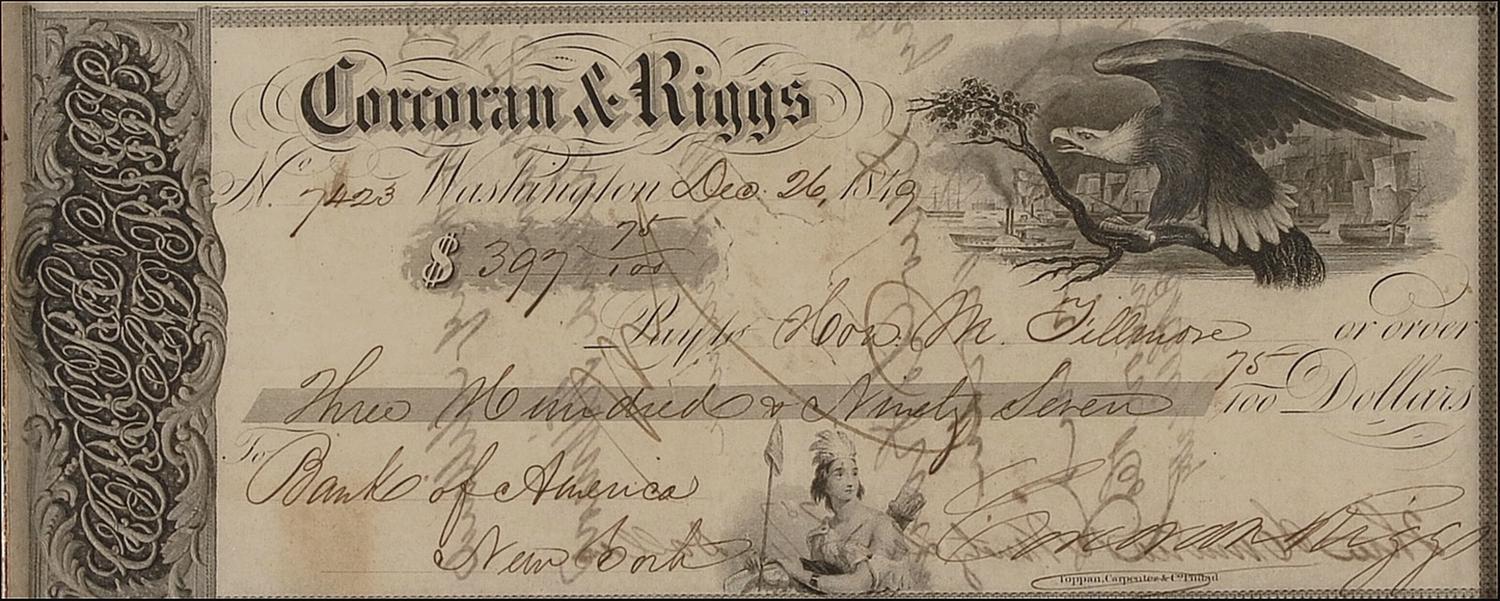 Corcoran & Riggs
N. 7423 Washington Dec. 26, 1849
$ 397 75/100
Pay to Hon. M. Fillmore or order
Three Hundred & Ninety Seven 75/100 Dollars
To Bank of America
New York
Corcoran & Riggs
Toppan, Carpenter & Co. Philad